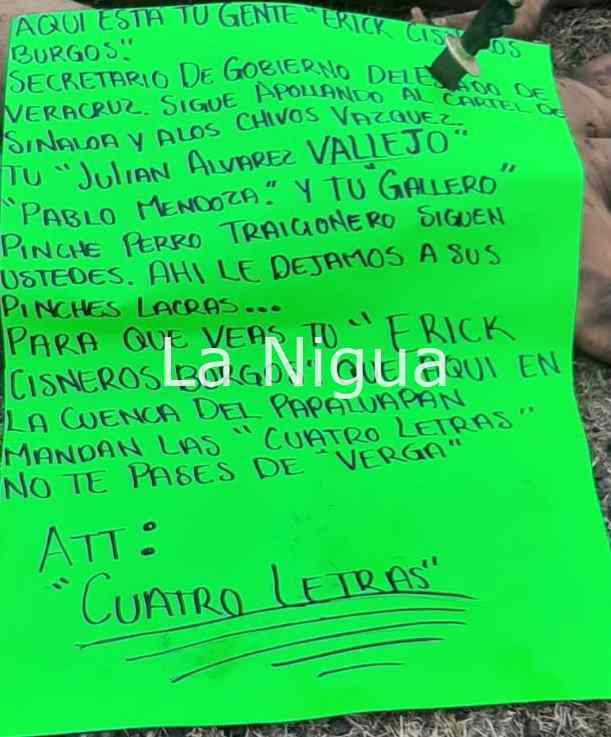 AQUI ESTA TU GENTE "ERICK CISNEROS
BURGOS".
SECRETARIO DE GOBIERNO DEL ESTADO DE
VERACRUZ. SIGUE APOLLANDO AL CARTEL DE
SINALOA Y ALOS CHIVOS VAZQUEZ.
TU "JULIAN ALVAREZ VALLEJO"
"PABLO MENDOZA." Y TU "GALLERO"
PINCHE PERRO TRAICIONERO SIGUEN
USTEDES. AHI LE DEJAMOS A SUS
PINCHES LACRAS...
PARA QUE VEAS TU "ERICK
CISNEROS BURGOS" QUE AQUI EN
LA CUENCA DEL PAPALUAPAN
MANDAN LAS "CUATRO LETRAS"
NO TE PASES DE "VERGA"
ATT:
"CUATRO LETRAS"
La Nigua